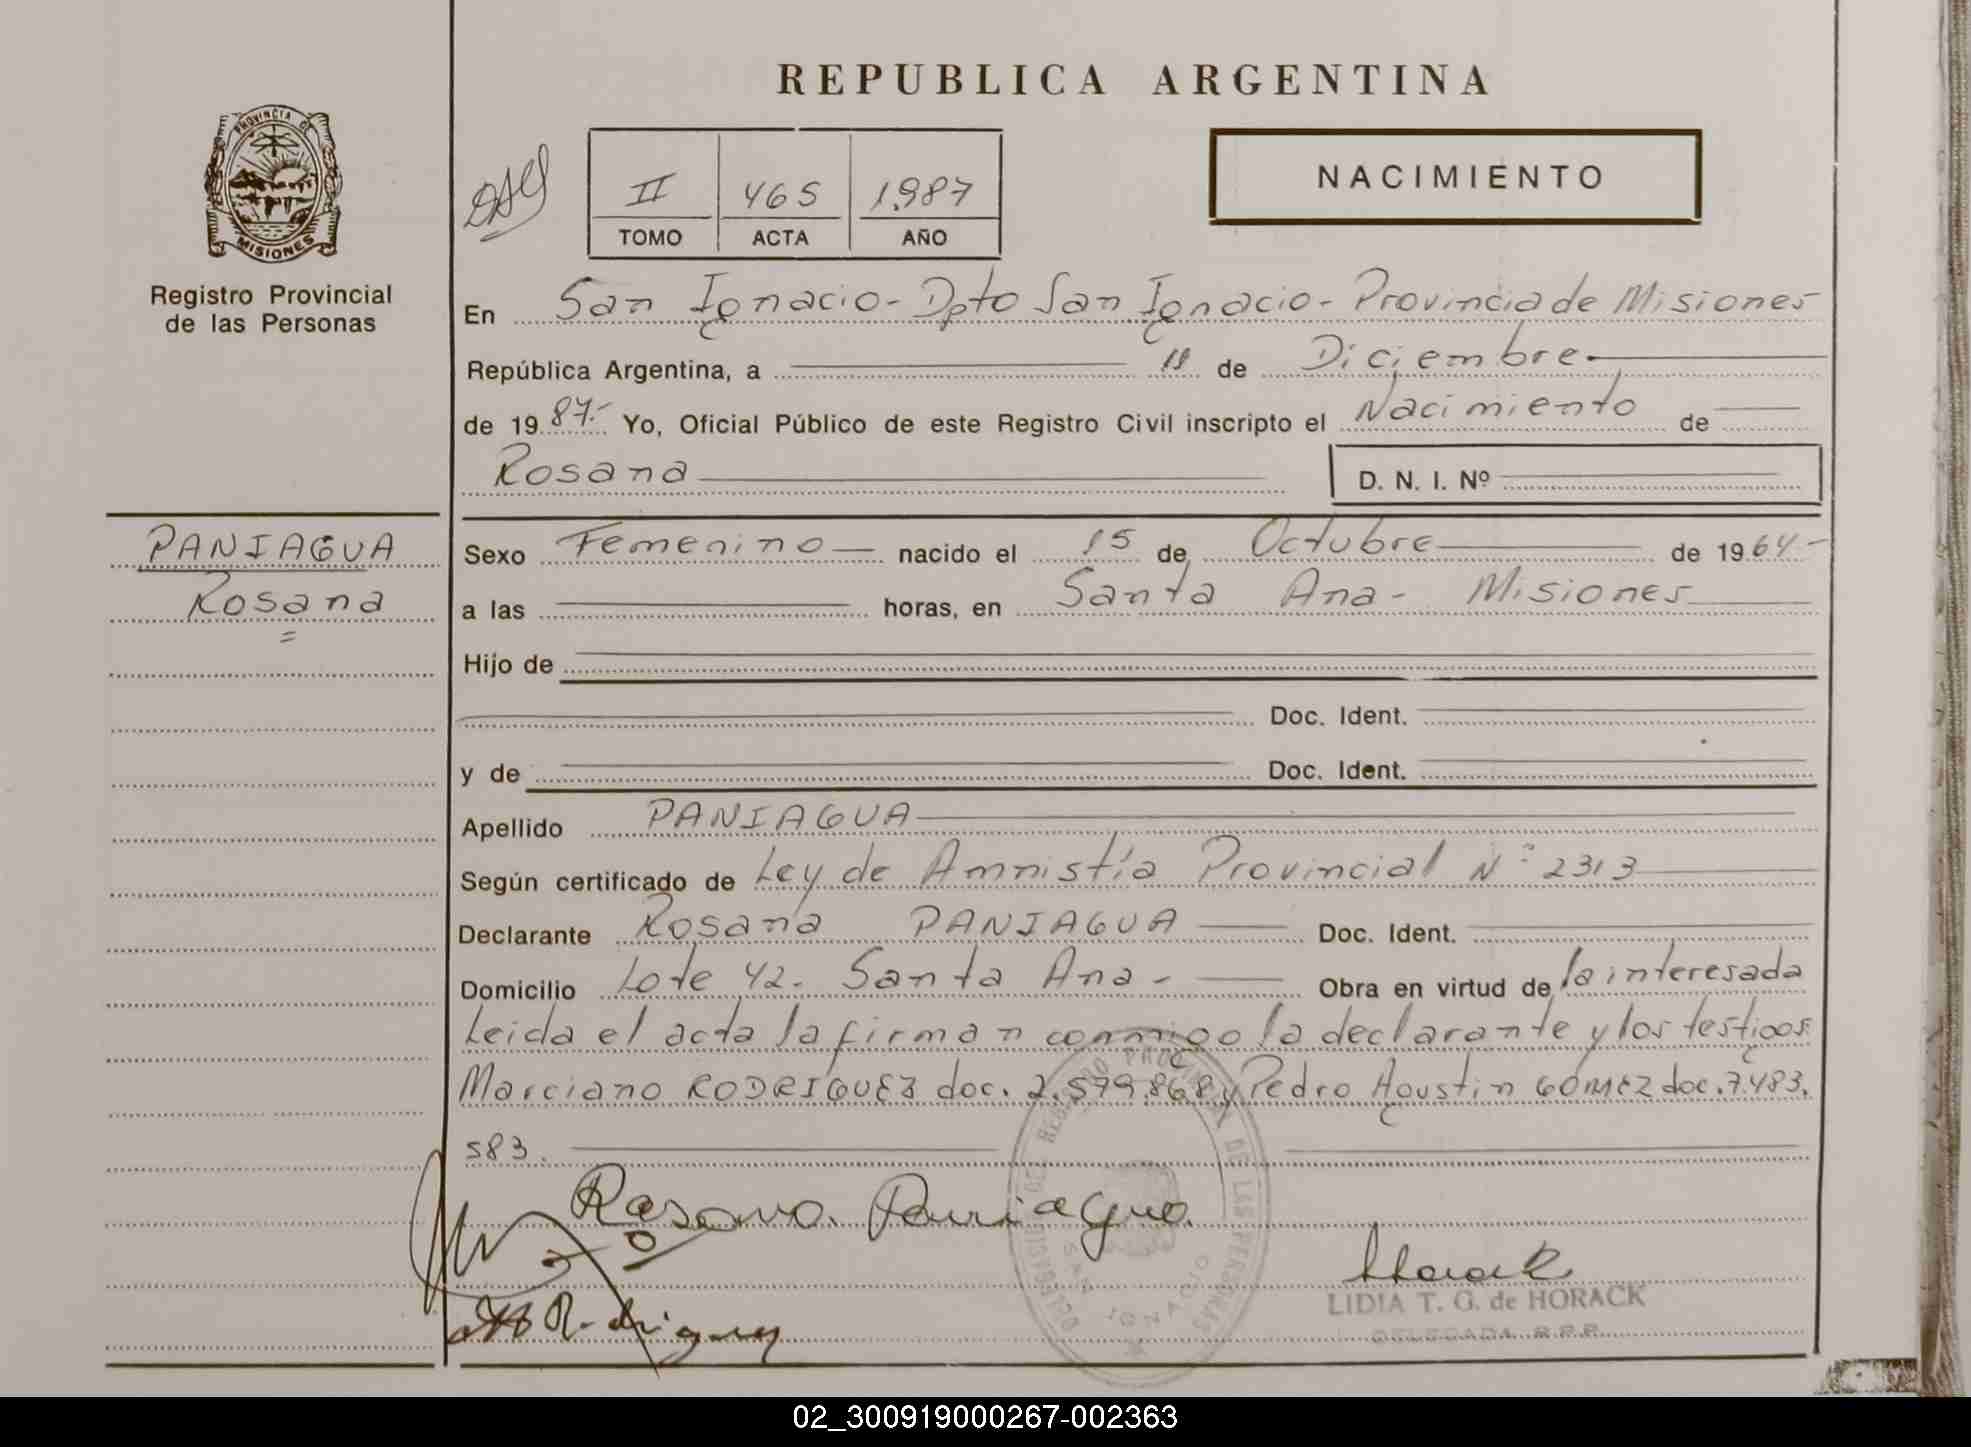 REPUBLICA ARGENTINA
PROVINCIA DE
MISIONES
Registro Provincial
de las Personas
II 465 1.987
TOMO ACTA AÑO
NACIMIENTO
En San Ignacio - Dpto San Ignacio - Provincia de Misiones
República Argentina, a 18 de Diciembre
de 1987.- Yo, Oficial Público de este Registro Civil inscripto el Nacimiento de
Rosana D. N. I. Nº
PANIAGUA
Rosana
Sexo Femenino nacido el 15 de Octubre de 1964.-
a las horas, en Santa Ana - Misiones
Hijo de
Doc. Ident.
y de Doc. Ident.
Apellido PANIAGUA
Según certificado de Ley de Amnistía Provincial Nº 2313
Declarante Rosana PANIAGUA Doc. Ident.
Domicilio Lote 42. Santa Ana - Obra en virtud de la interesada
Leida el acta la firman conmigo la declarante y los testigos
Marciano RODRIGUEZ doc. 2.579.868 y Pedro Agustin GOMEZ doc. 7.483.
583.
Rosana Paniagua
Horack
LIDIA T. G. de HORACK
DELEGADA R.P.P.
DELEGACION DEL REGISTRO PROVINCIAL DE LAS PERSONAS
SAN IGNACIO
Rodriguez
02_300919000267-002363